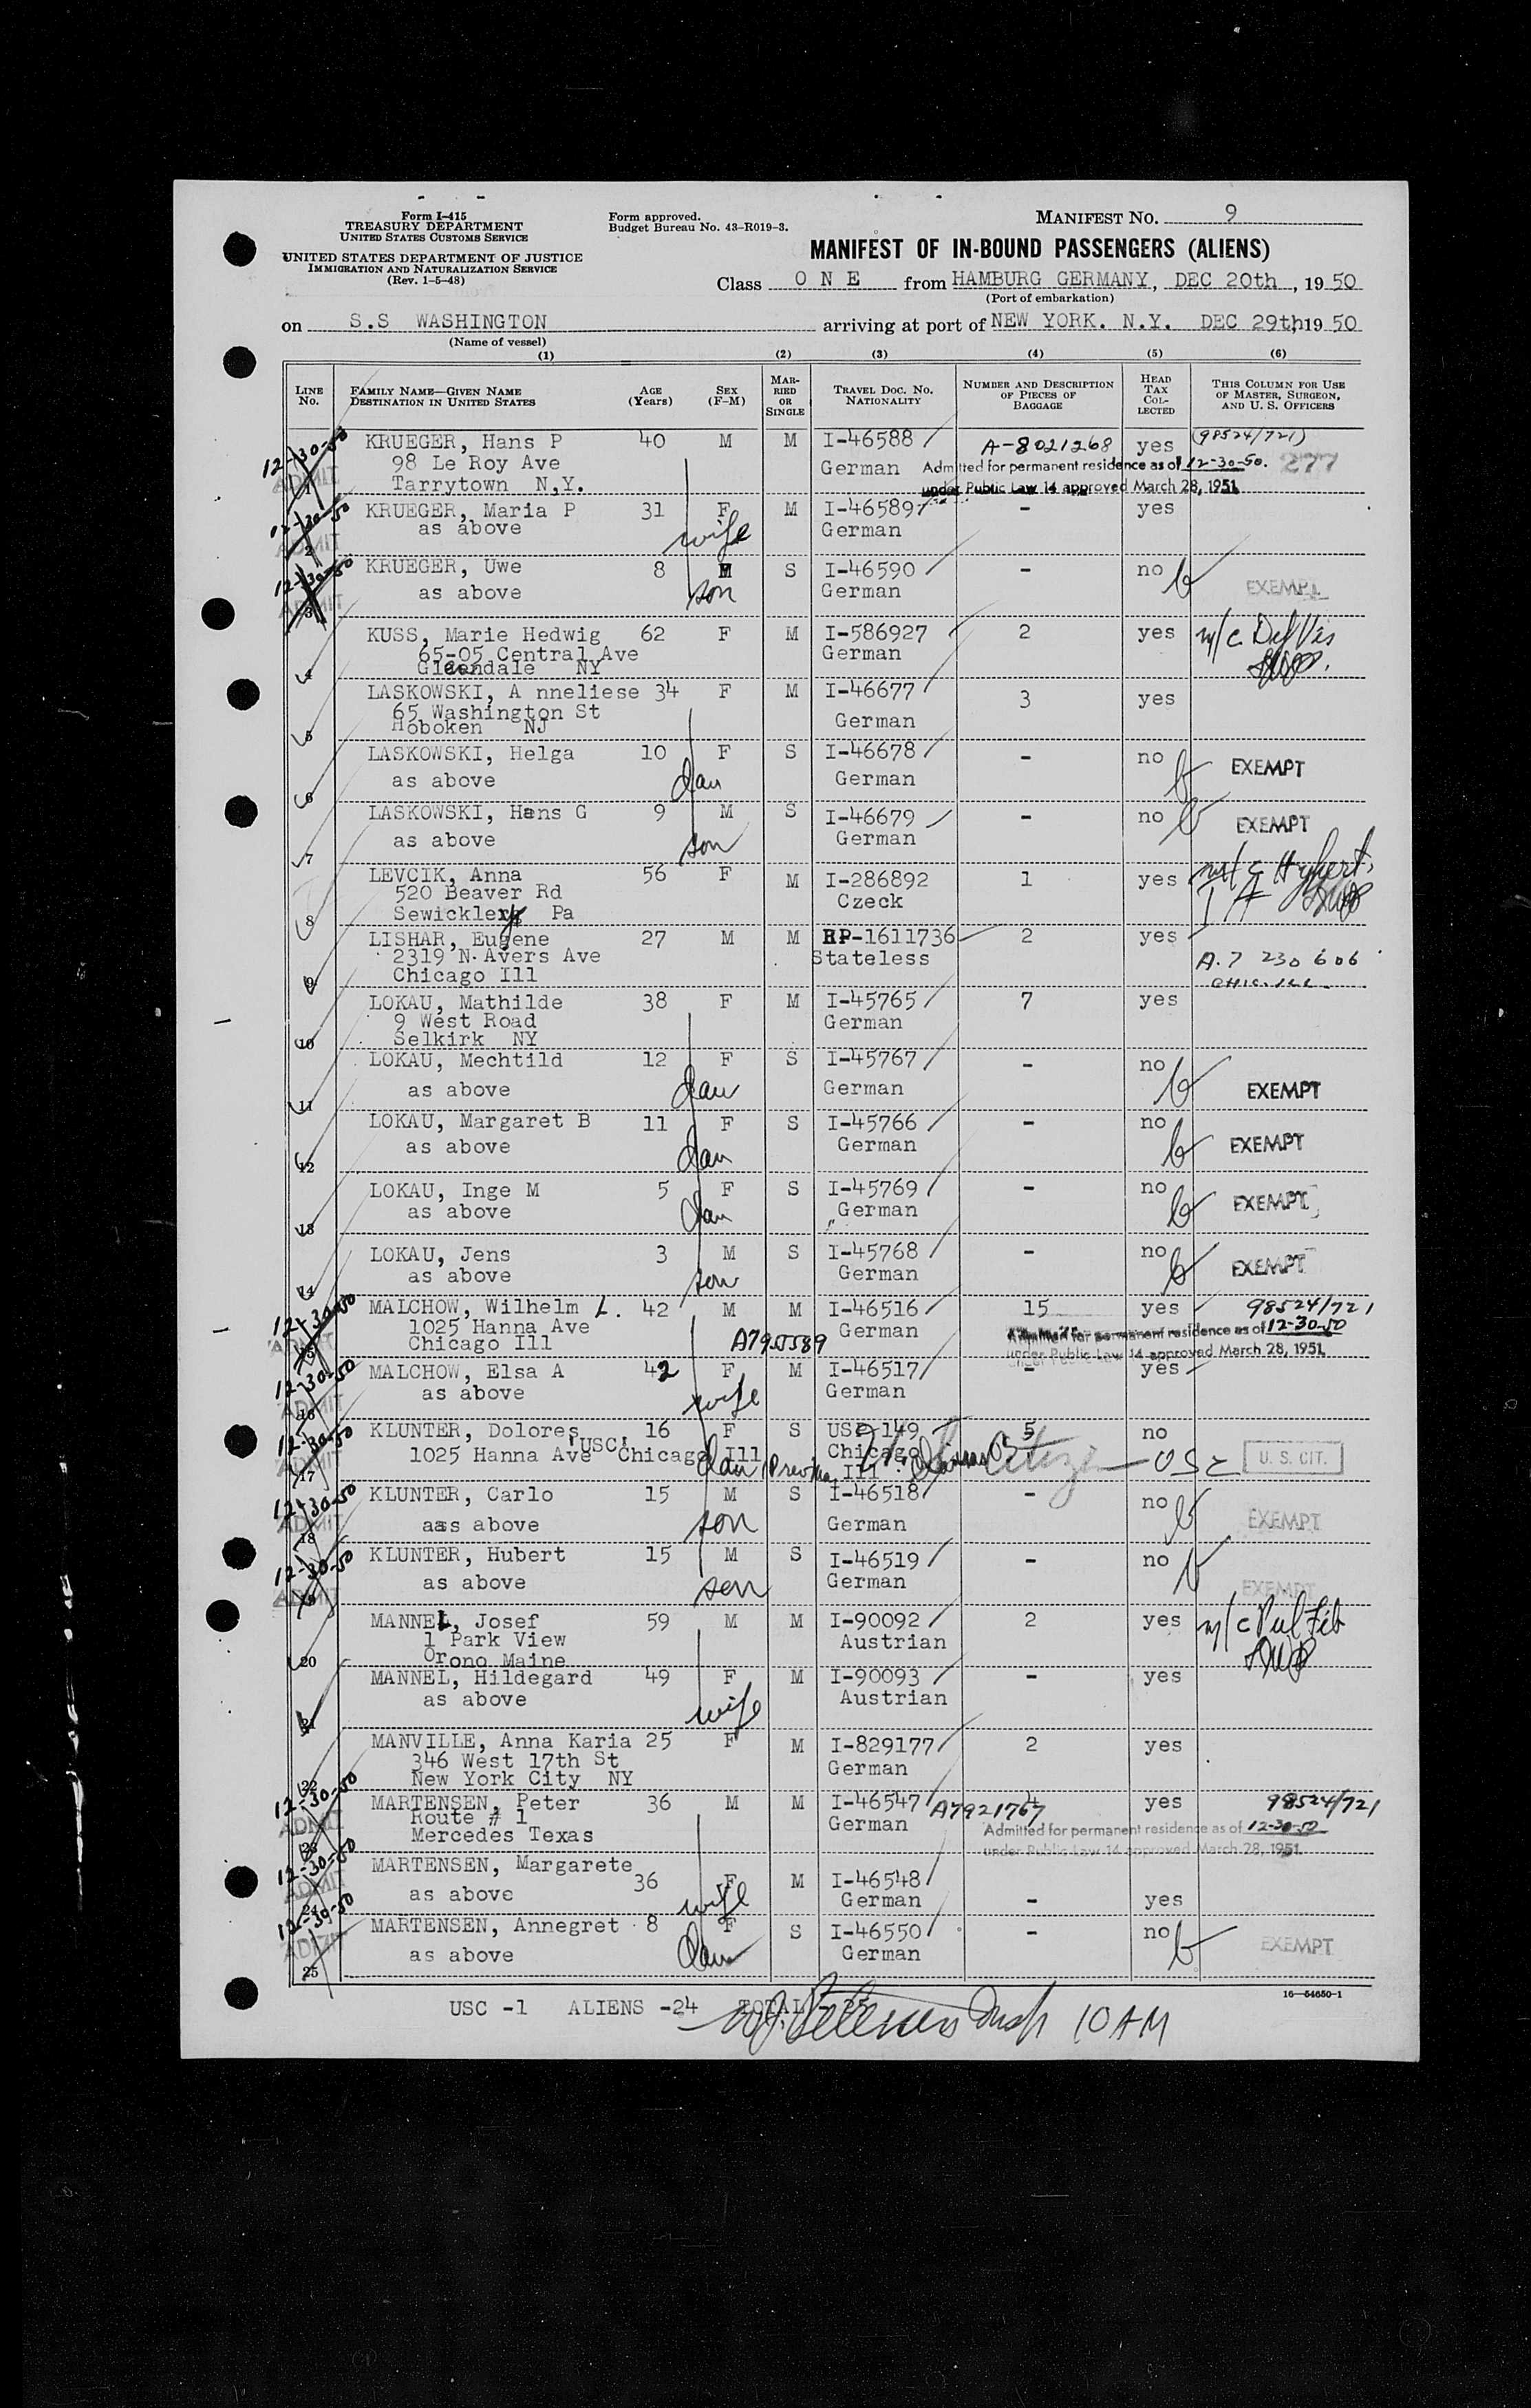 Form I-415
TREASURY DEPARTMENT
UNITED STATES CUSTOMS SERVICE
UNITED STATES DEPARTMENT OF JUSTICE
IMMIGRATION AND NATURALIZATION SERVICE
(Rev. 1-5-48)
Form approved.
Budget Bureau No. 43-R019-3.
MANIFEST NO. 9
MANIFEST OF IN-BOUND PASSENGERS (ALIENS)
Class O N E from HAMBURG GERMANY, DEC 20th, 1950
(Port of embarkation)
on S.S WASHINGTON arriving at port of NEW YORK. N.Y. DEC 29th 1950
(Name of vessel)
(1) (2) (3) (4) (5) (6)
LINE No. FAMILY NAME—GIVEN NAME DESTINATION IN UNITED STATES AGE (Years) SEX (F-M) MARRIED OR SINGLE TRAVEL DOC. NO. NATIONALITY NUMBER AND DESCRIPTION OF PIECES OF BAGGAGE HEAD TAX COLLECTED THIS COLUMN FOR USE OF MASTER, SURGEON, AND U. S. OFFICERS
12-30-50 KRUEGER, Hans P 40 M M I-46588 A-8021268 yes (98524/721)
ADMIT 1 98 Le Roy Ave German Admitted for permanent residence as of 12-30-50. 277
Tarrytown N,Y. under Public Law 14 approved March 28, 1951.
12-30-50 KRUEGER, Maria P 31 F M I-46589 - yes
ADMIT 2 as above wife German
12-30-50 KRUEGER, Uwe 8 M S I-46590 - no
ADMIT 3 as above son German EXEMPT
KUSS, Marie Hedwig 62 F M I-586927 2 yes m/c Def Vis
65-05 Central Ave German
4 Glendale NY
LASKOWSKI, A nneliese 34 F M I-46677 3 yes
65 Washington St German
5 Hoboken NJ
LASKOWSKI, Helga 10 F S I-46678 - no EXEMPT
6 as above dau German
LASKOWSKI, Hans G 9 M S I-46679 - no EXEMPT
7 as above son German
LEVCIK, Anna 56 F M I-286892 1 yes
520 Beaver Rd Czeck
8 Sewickley Pa
LISHAR, Eugene 27 M M RP-1611736 2 yes
2319 N. Avers Ave Stateless A.7 230 606
9 Chicago Ill CHIC. ILL
LOKAU, Mathilde 38 F M I-45765 7 yes
9 West Road German
10 Selkirk NY
LOKAU, Mechtild 12 F S I-45767 - no
11 as above dau German EXEMPT
LOKAU, Margaret B 11 F S I-45766 - no
12 as above dau German EXEMPT
LOKAU, Inge M 5 F S I-45769 - no
13 as above dau German EXEMPT
LOKAU, Jens 3 M S I-45768 - no
14 as above son German EXEMPT
12-30-50 MALCHOW, Wilhelm L. 42 M M I-46516 15 yes 98524/721
ADMIT 15 1025 Hanna Ave German Admitted for permanent residence as of 12-30-50
Chicago Ill A7955589 under Public Law 14 approved March 28, 1951.
12-30-50 MALCHOW, Elsa A 42 F M I-46517 - yes
ADMIT 16 as above wife German
12-30-50 KLUNTER, Dolores 16 F S 5 no
17 1025 Hanna Ave "USC" Chicago Ill dau Chicago Ill Citizen USC U. S. CIT.
12-30-50 KLUNTER, Carlo 15 M S I-46518 - no
ADMIT 18 aas above son German EXEMPT
12-30-50 KLUNTER, Hubert 15 M S I-46519 - no
ADMIT 19 as above son German EXEMPT
MANNEL, Josef 59 M M I-90092 2 yes m/c Pul Fib
1 Park View Austrian
20 Orono Maine
MANNEL, Hildegard 49 F M I-90093 - yes
21 as above wife Austrian
MANVILLE, Anna Karia 25 F M I-829177 2 yes
346 West 17th St German
22 New York City NY
12-30-50 MARTENSEN, Peter 36 M M I-46547 4 yes 98524/721
ADMIT 23 Route # 1 German A7921767 Admitted for permanent residence as of 12-30-50
Mercedes Texas under Public Law 14 approved March 28, 1951.
12-30-50 MARTENSEN, Margarete 36 F M I-46548
ADMIT 24 as above wife German - yes
12-30-50 MARTENSEN, Annegret 8 F S I-46550 - no
ADMIT 25 as above dau German EXEMPT
16—54650-1
USC -1 ALIENS -24 TOTAL 25
Insp 10 AM